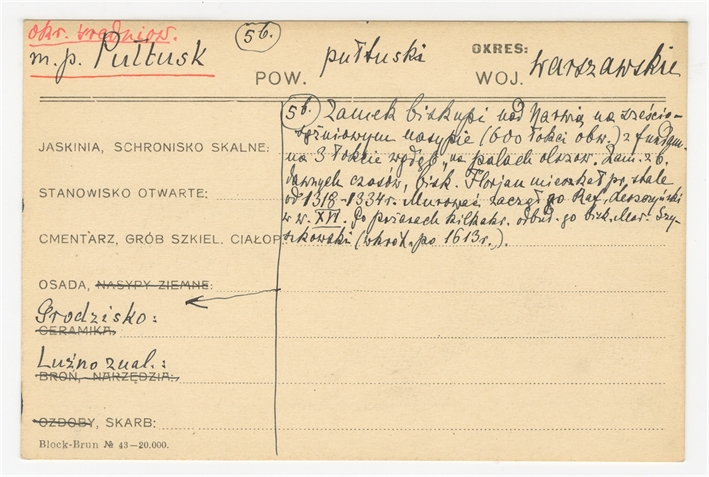 okr. średniow. 5b.
m. p. Pułtusk POW. pułtuski OKRES:
WOJ. warszawskie
5b. Zamek biskupi nad Narwią na sześcio-
sążniowym nasypie (600 łokci obw.) z fundam.
JASKINIA, SCHRONISKO SKALNE: na 3 łokcie wgłęb, na palach olszow. Zam. z b.
STANOWISKO OTWARTE: dawnych czasów, bisk. Florjan mieszkał pr. stale
od 1318-1334 r. Murować zaczął go Raf. Leszczyński
w w. XVI. Po pożarach kilkakr. odbud. go bisk. Mar. Szy-
CMENTARZ, GRÓB SZKIEL. CIAŁOP. szkowski (wkrót. po 1613 r.).
OSADA, NASYPY ZIEMNE:
Grodzisko:
CERAMIKA,
Luźno znal.:
BROŃ, NARZĘDZIA:
OZDOBY, SKARB:
Block-Brun № 43—20.000.